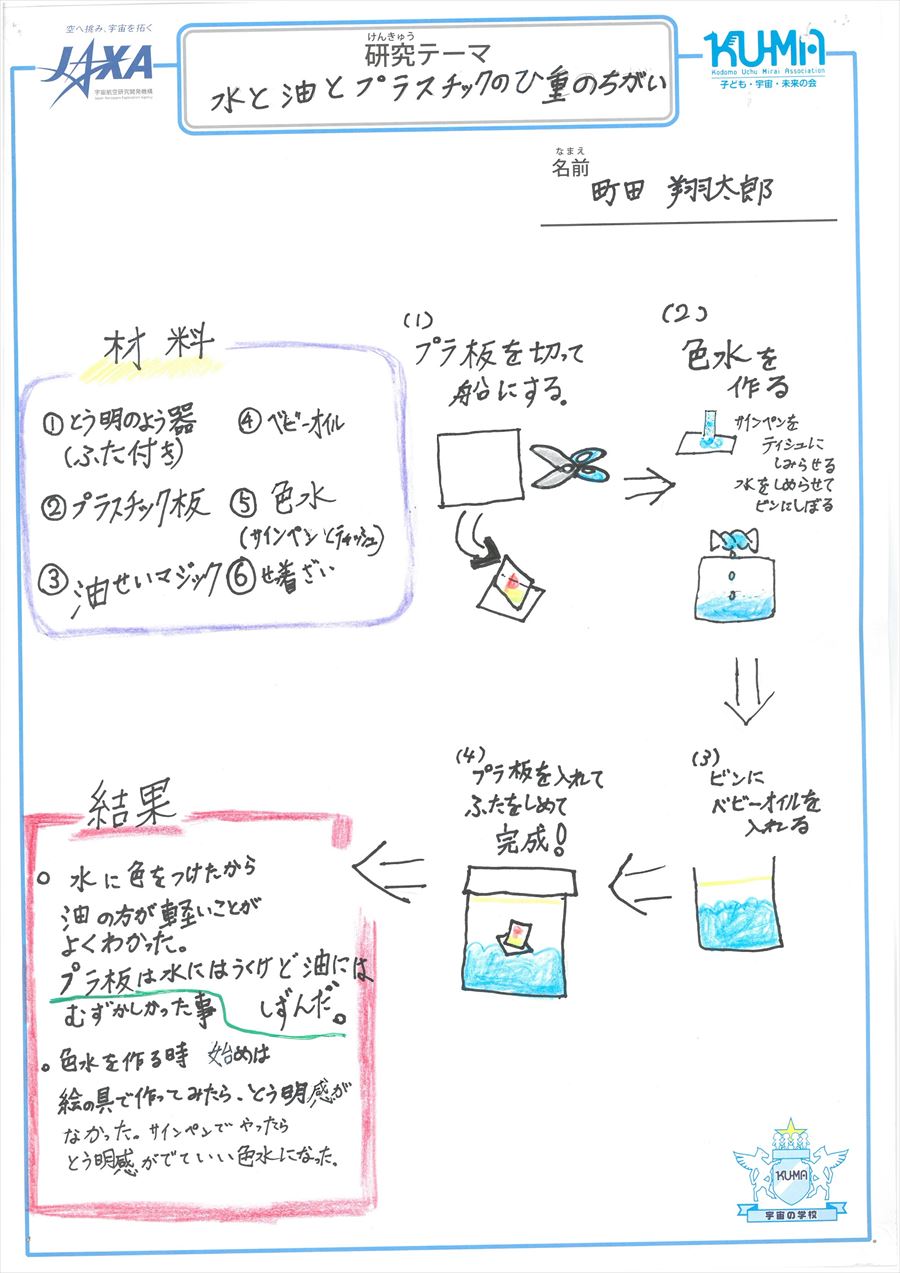 空へ挑み、宇宙を拓く
JAXA
宇宙航空研究開発機構
Japan Aerospace Exploration Agency
けんきゅう
研究テーマ
水と油とプラスチックのひ重のちがい
KU-MA
Kodomo Uchu Mirai Association
子ども・宇宙・未来の会
なまえ
名前
町田 翔太郎
材料
①とう明のよう器
(ふた付き)
②プラスチック板
③油せいマジック
④ベビーオイル
⑤色水
(サインペンとティッシュ)
⑥せ着ざい
(1)
プラ板を切って
船にする。
(2)
色水を
作る
サインペンを
ティシュに
しみらせる
水をしめらせて
ビンにしぼる
(3)
ビンに
ベビーオイルを
入れる
(4)
プラ板を入れて
ふたをしめて
完成!
結果
○ 水に色をつけたから
油の方が軽いことが
よくわかった。
プラ板は水にはうくけど油には
しずんだ。
むずかしかった事
○色水を作る時 始めは
絵の具で作ってみたら、とう明感が
なかった。サインペンでやったら
とう明感がでていい色水になった。
KU-MA
宇宙の学校